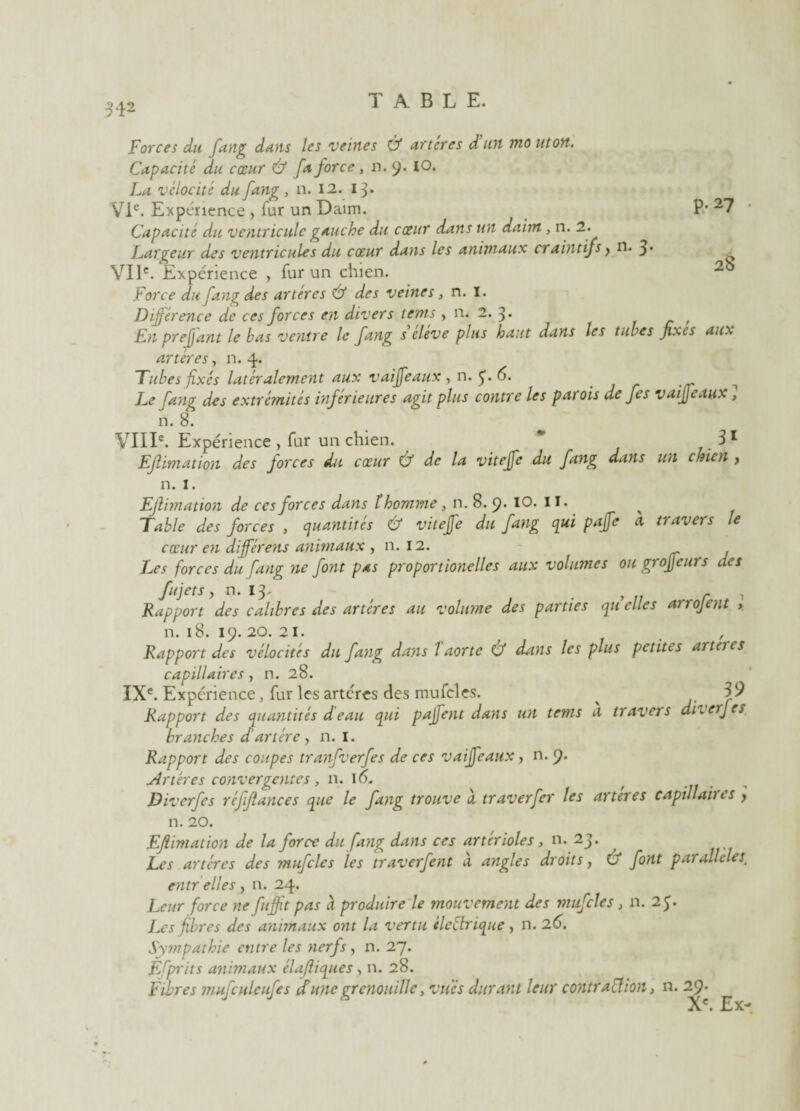 342
TABLE.
Forces du ſang dans les veines & artéres d'un mouton.
Capacité du cœur & ſa force, n. 9. 10.
La vélocité du ſang, n. 12. 13.
VIe. Expérience, ſur un Daim. p. 27
Capacité du ventricule gauche du cœur dans un daim, n. 2.
Largeur des ventricules du cœur dans les animaux craintifs, n. 3.
VIIe. Expérience, ſur un chien. 28
Force du ſang des artéres & des veines, n. 1.
Différence de ces forces en divers tems, n. 2. 3.
En preſſant le bas ventre le ſang s'éléve plus haut dans les tubes fixés aux
artéres, n. 4.
Tubes fixés latéralement aux vaiſſeaux, n. 5. 6.
Le ſang des extrémités inférieures agit plus contre les parois de ſes vaiſſeaux,
n. 8.
VIIIe. Expérience, ſur un chien. 31
Eſtimation des forces du cœur & de la viteſſe du ſang dans un chien,
n. 1.
Eſtimation de ces forces dans l'homme, n. 8. 9. 10. 11.
Table des forces, quantités & viteſſe du ſang qui paſſe à travers le
cœur en différens animaux, n. 12.
Les forces du ſang ne ſont pas proportionelles aux volumes ou groſſeurs des
ſujets, n. 13.
Rapport des calibres des artéres au volume des parties qu'elles arroſent,
n. 18. 19. 20. 21.
Rapport des vélocités du ſang dans l'aorte & dans les plus petites artéres
capillaires, n. 28.
IXe. Expérience, ſur les artéres des muſcles. 39
Rapport des quantités d'eau qui paſſent dans un tems à travers diverſes
branches d'artére, n. 1.
Rapport des coupes tranſverſes de ces vaiſſeaux, n. 9.
Artéres convergentes, n. 16.
Diverſes réſiſtances que le ſang trouve à traverſer les artéres capillaires,
n. 20.
Eſtimation de la force du ſang dans ces artérioles, n. 23.
Les artéres des muſcles les traverſent à angles droits, & ſont paralléles
entr'elles, n. 24.
Leur force ne ſuffit pas à produire le mouvement des muſcles, n. 25.
Les fibres des animaux ont la vertu électrique, n. 26.
Sympathie entre les nerfs, n. 27.
Eſprits animaux élaſtiques, n. 28.
Fibres muſculeuſes d'une grenouille, vuës durant leur contraction, n. 29.
Xe. Ex-